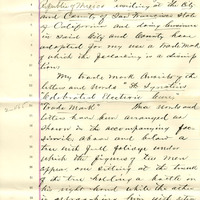 Republic of Mexico residing at the City
and County of San Francisco State
of California and doing business
in said City and County have
adopted for my use a Trade Mark
of which the following is a descrip-
tion
My Trade Mark consists of the
letters and words "St Ignatius
Celebrated
Trade Mark" The words and
letters have been arranged as
shown in the accompanying fac-
simile above and below a
tree with full foliage under
which the figures of two men
appear one sitting at the trunk
of the tree holding a bottle in
his right hand while the other
is approaching him with